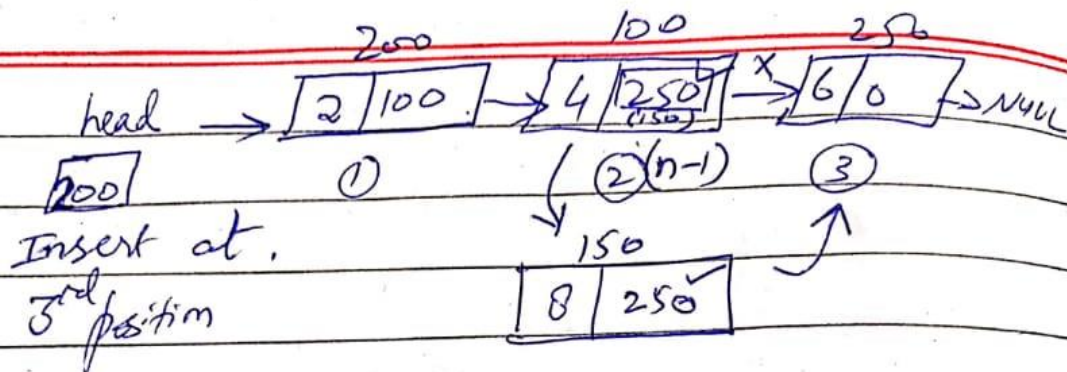 200 100 250
head → 2 | 100 → 4 | 250 X → 6 | 0 → NULL
(150)
200 ① ② (n-1) ③
Insert at.
150
3rd position 8 | 250